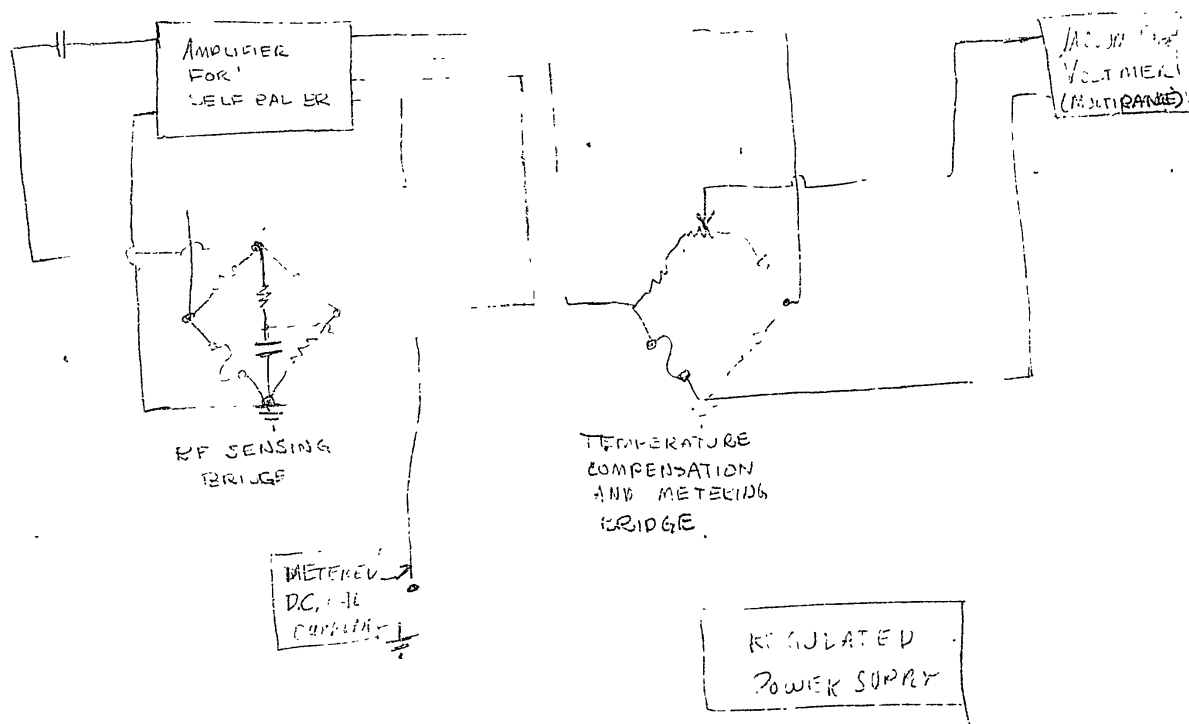 AMPLIFIER
FOR
SELF BALER
VOLTMER
(MULTIRANGE)
RF SENSING
BRIDGE
TEMPERATURE
COMPENSATION
AND METERING
BRIDGE
METERED
D.C.
REGULATED
POWER SUPPLY